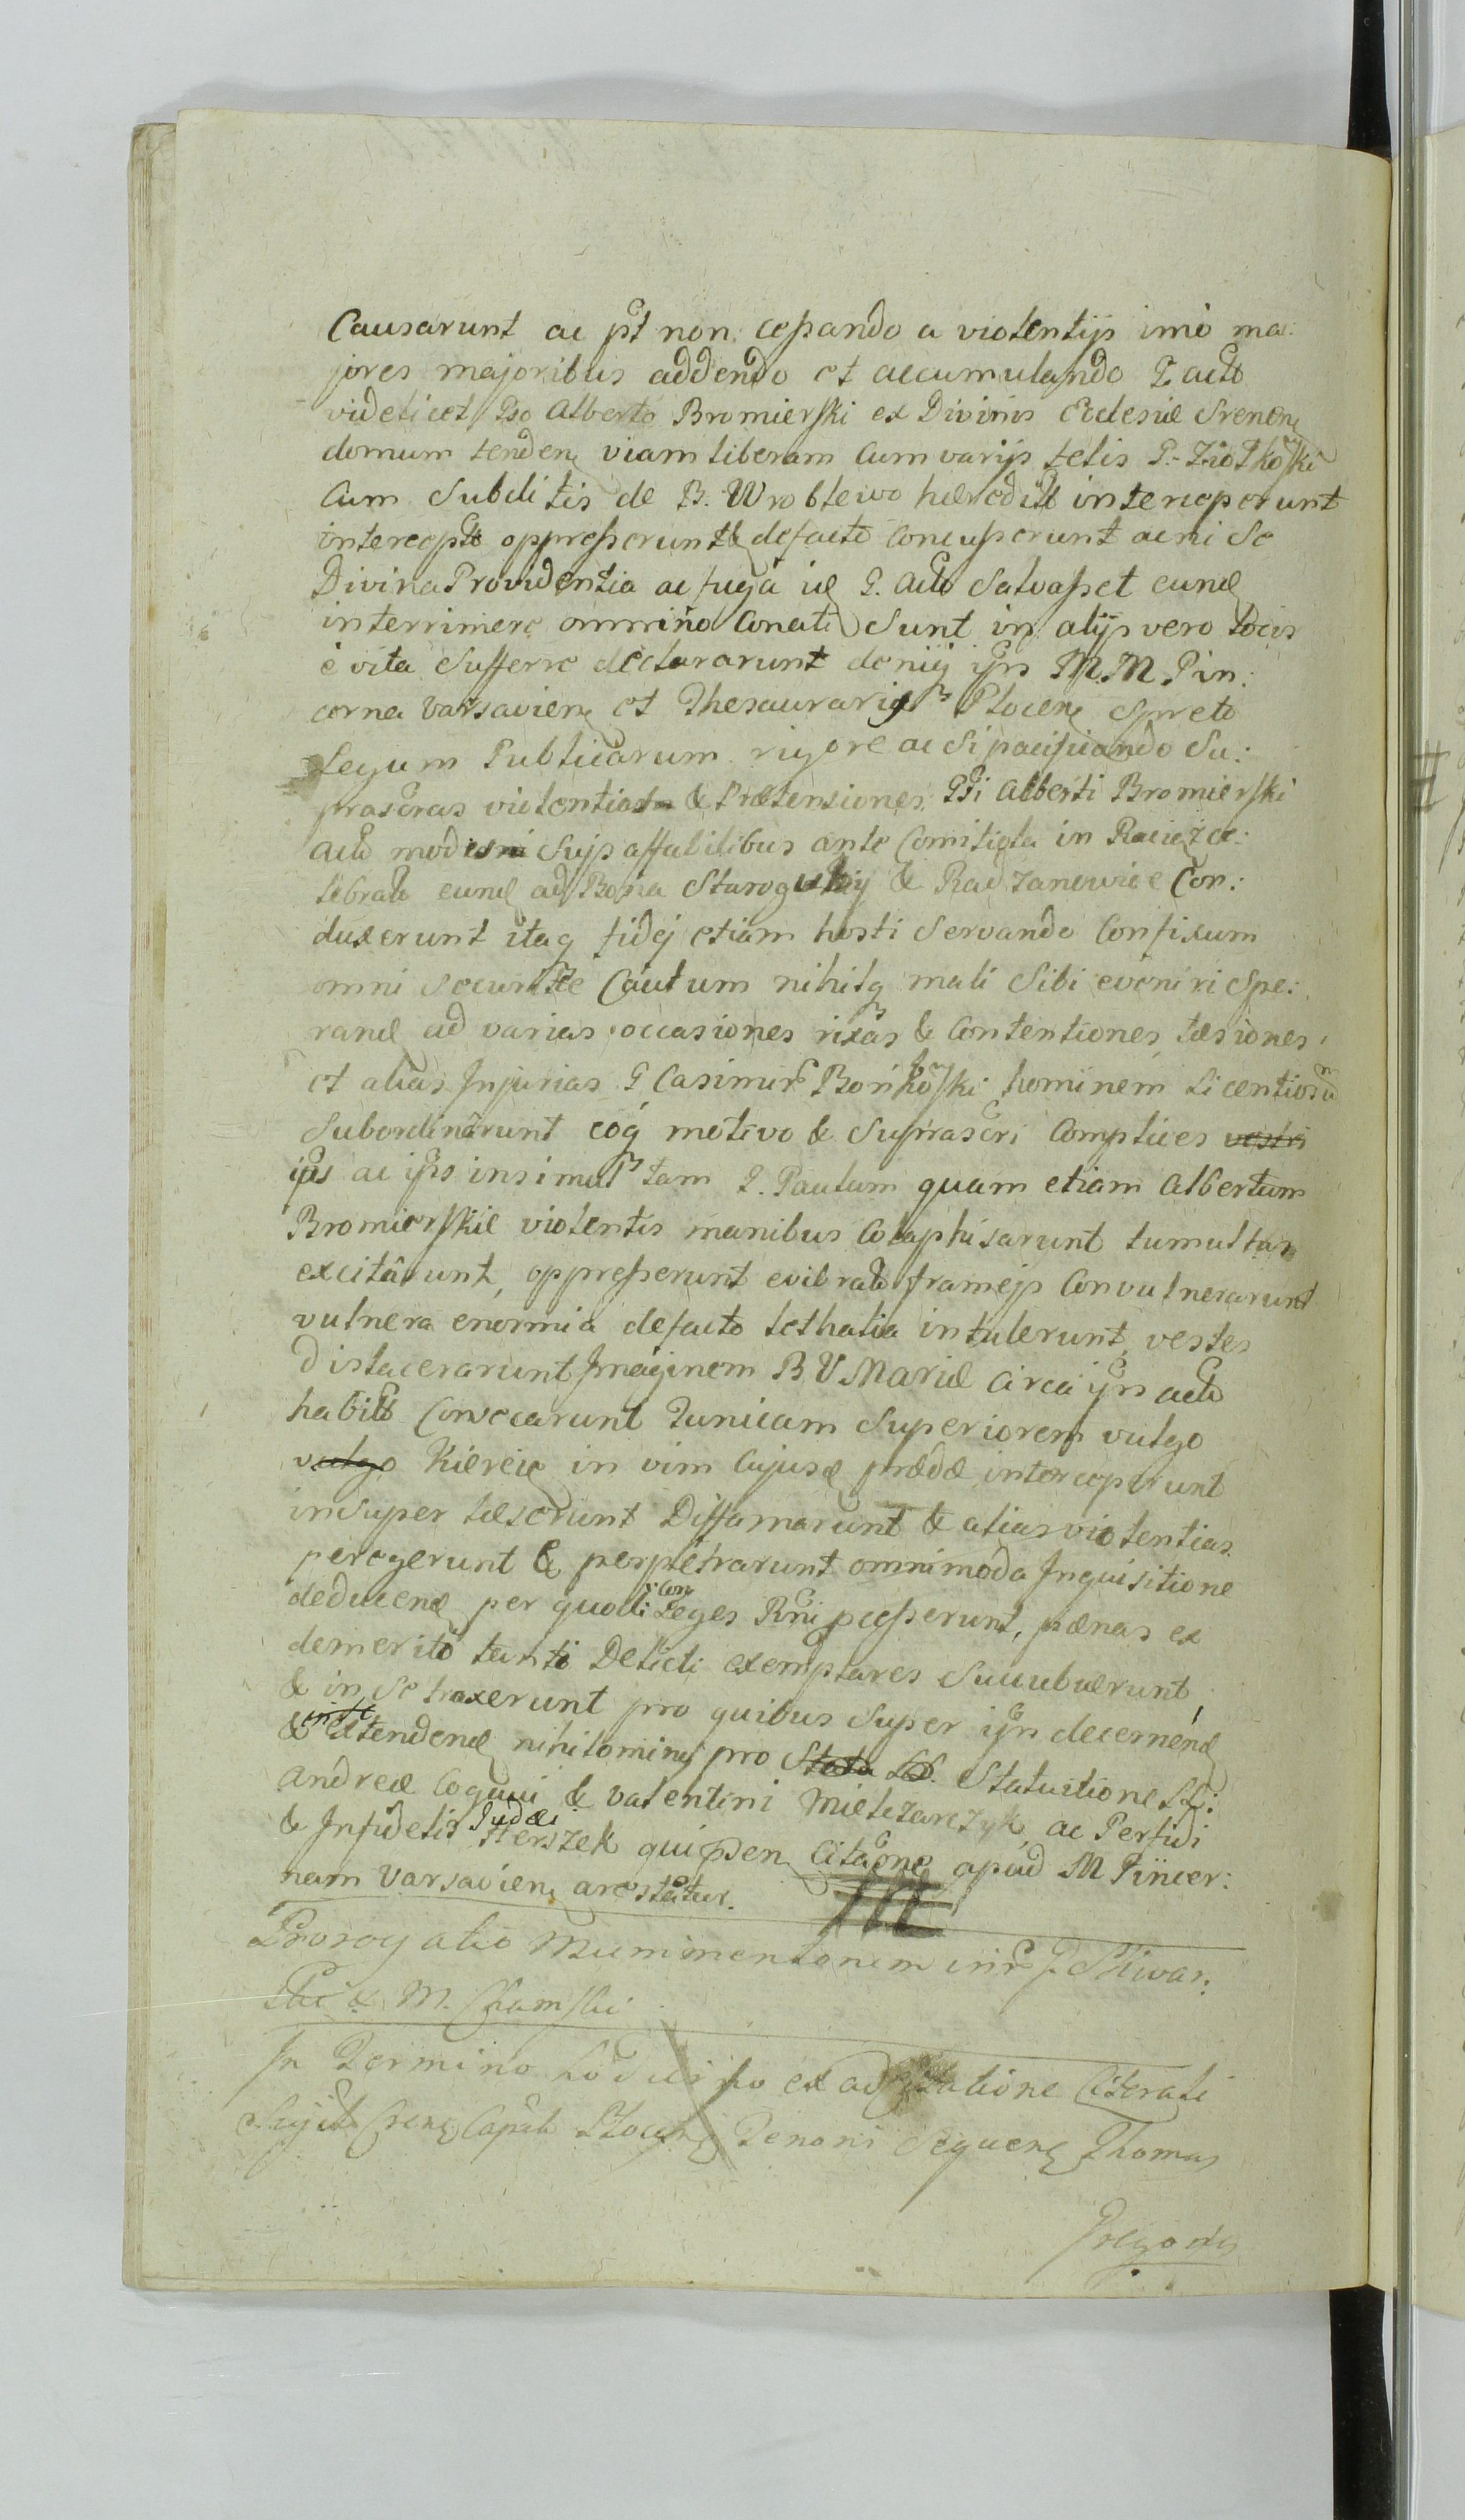 Causarunt ac pt non cessando a violentijs imò ma:
jores majoribus addendo et accumulando G actō
videlicet Gso Alberto Bromierski ex Divinis Ecclesiæ Srenen
domum tenden viam liberam Cum varijs telis G. Ziółkoski
Cum Subditis de B. Wroblewo hæredit intercoperunt
intercepto oppresserunt & defacto Concusserunt ac ni Se
Divina Providentia ac fuga G. Actō Salvasset eund
interrimere omnino Conati Sunt in alijs vero Locis
è vita Sufferre declararunt deniq ipsi M. M. Pin:
cerna Varsavien et Thesaurarig Plocen Spreto
Legum Publicarum rigore ac Si pacificando Su:
prascras violentias & Prætensiones Gsi Alberti Bromierski
Actō modis Suis affabilibus ante Comitiola in Raciąż ce:
lebrata eund ad Bona Staroguby & Radzanowice Con:
duxerunt itaq fidej etiam hosti Servando Confixum
omni Securitte Cautum nihilq mali Sibi eveniri Spe:
rand ad varias occasiones rixas & Contentiones, læsiones
et alias Injurias G Casimir Bońkoski hominem Licentiosū
Subordinârunt eóq motivo & Suprascri Complices vestri
ips ac ips insimul tam G. Paulum quam etiam Albertum
Bromierskie violentis manibus Colaphisarunt tumultum
excitârunt, oppresserunt evibrato framejs Convulnerarunt
vulnera enormia defacto lethalia intulerunt, vestes
dislacerarunt Imaginem B. V. Mariæ Circa ips actō
habitō Convocarunt Tunicam Superiorem vulgo
vulgo Kiereię in vim Cujusd prædæ interceperunt
insuper læserunt Diffamarunt & alias violentias
peregerunt & perpetrarunt omnimoda Inquisitione
deducend per quod Con Leges Rni pcesserunt, pænas ex
demerito tanti Delicti exemplares Succubuerunt
& in Se traxerunt pro quibus Super ips decernend
& extendend nihilominus pro Statu Statuitione LL:
Andreæ Coqui & Valentini Mielczarczyk ac Perfidi
& Infidelis Judæi Herszek quipden Citaōne apud M Pincer:
nam Varsavien arestatur.
Prorogatio Munimentorum inr G Śliwar:
ski & M. Chamski
In Termino hodierno ex ad Citatione Literali
Thomas